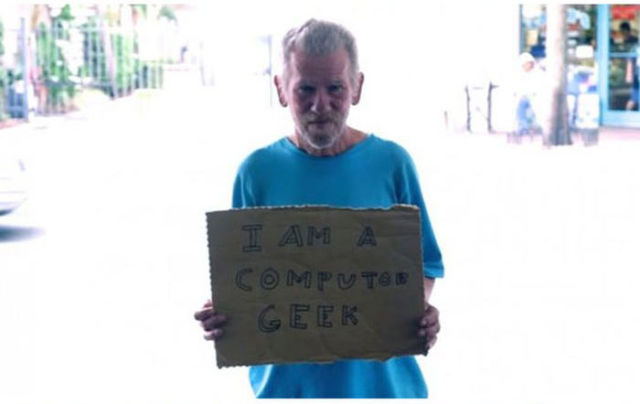 I AM A
COMPUTOR
GEEK